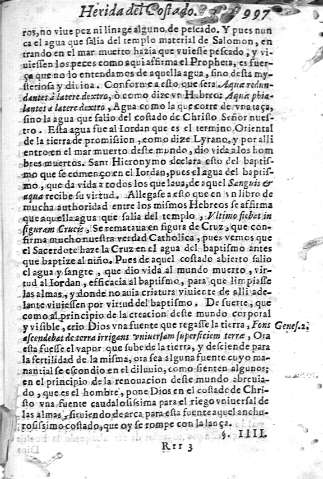 Herida del Costado. 997
ros, no viue pez ni linage alguno de pescado. Y pues nun
ca el agua que salia del templo material de Salomon, en
trando en el mar muerto hazia que vuiesse pescado, y vi
uiessen los peces como aqui affirma el Propheta, es fuer
ça que no lo entendamos de aquella agua, sino desta my
steriosa y diuina. Conforme a esto que sera Aquæ redun
dantes à latere dextro, ò como dize vn Hebreo Aquæ phia
lantes à latere dextro, Agua como la que corre de vna taça,
sino la agua que salio del costado de Christo Señor nues-
tro. Esta agua fue al Iordan que es el termino Oriental
de la tierra de promission, como dize Lyrano, y por alli
entro en el mar muerto deste mundo, dio vida a los hom
bres muertos. Sant Hieronymo declara esto del baptis-
mo que se començo en el Iordan, pues el agua del baptis-
mo, que da vida a todos los que laua, de aquel Sanguis &
aqua recibe su virtud. Allegase a esto que en vn libro de
mucha authoridad entre los mismos Hebreos se affirma
que aquella agua que salia del templo, Vltimo fiebat in
figuram Crucis, Se remataua en figura de Cruz, que con
firma mucho nuestra verdad Catholica, pues vemos que
el Sacerdote haze la Cruz en el agua del baptismo antes
que baptize al niño. Pues de aquel costado abierto salio
el agua y sangre, que dio vida al mundo muerto, vir-
tud al Iordan, efficacia al baptismo, para que limpiasse
las almas, y donde no auia criatura viuiente de alli ade-
lante viuiessen por virtud del baptismo. De suerte, que
como al principio de la creacion deste mundo corporal
y visible, crio Dios vna fuente que regasse la tierra, Fons Genes.2,
ascendebat de terra irrigans vniuersam superficiem terræ, Ora
esta fuesse el vapor que sube de la tierra, y desciende para
la fertilidad de la misma, ora sea alguna fuente cuyo ma-
nantial se escondio en el diluuio, como sienten algunos;
en el principio de la renouacion deste mundo abreuia-
do, que es el hombre, pone Dios en el costado de Chri-
sto vna fuente caudalosissima para el riego vniuersal de
las almas, siruiendo de arca para esta fuente aquel anchu-
rosissimo costado, que oy se rompe con la lança.
§. IIII.
Rrr 3